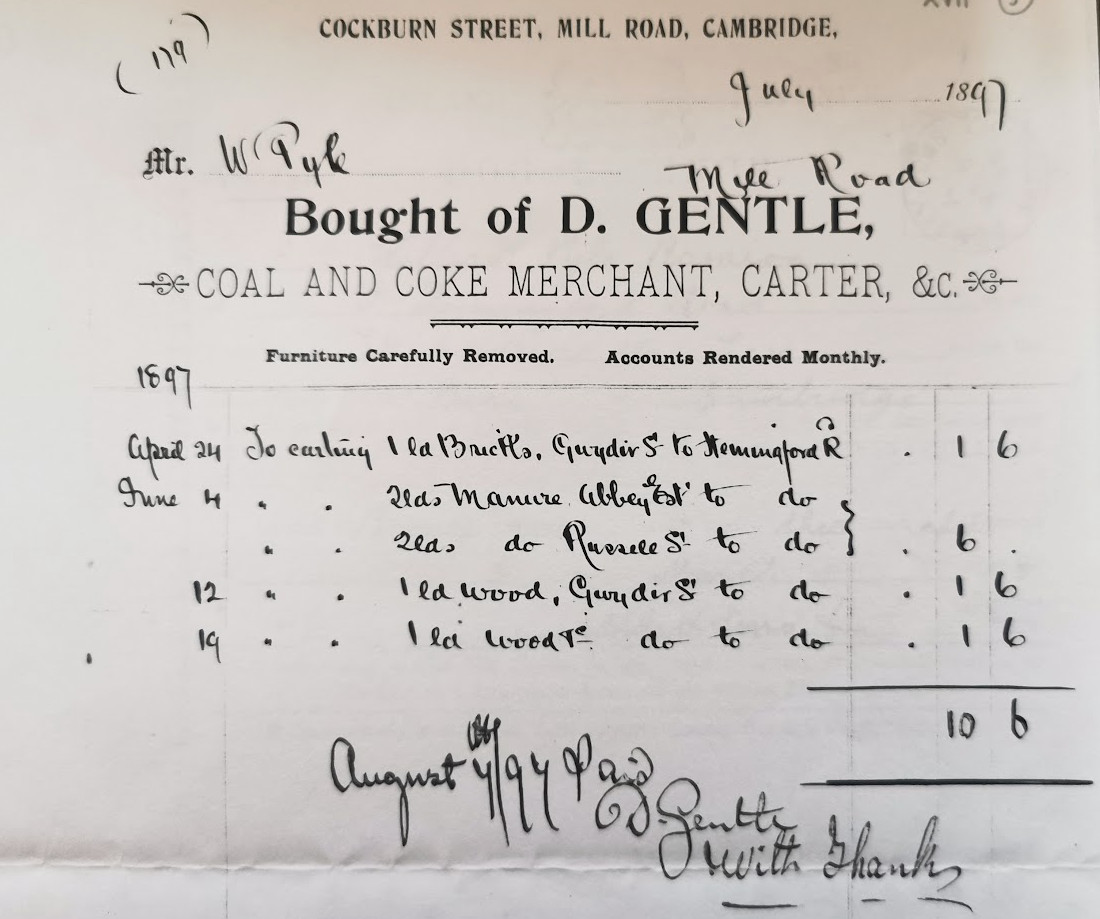 XVII 5
COCKBURN STREET, MILL ROAD, CAMBRIDGE,
(179)
July 1897
Mr. W Pyle
Mill Road
Bought of D. GENTLE,
COAL AND COKE MERCHANT, CARTER, &c.
Furniture Carefully Removed. Accounts Rendered Monthly.
1897
April 24 To carting 1 ld Bricks, Gwydir St to Hemingford Rd . 1 6
June 4 " . 2 lds Manure Abbey Est to do
" . 2 lds do Russell St to do } . 6 .
12 " . 1 ld wood, Gwydir St to do . 1 6
19 " . 1 ld wood &c do to do . 1 6
10 6
August 4/97 Paid
D. Gentle
With Thanks